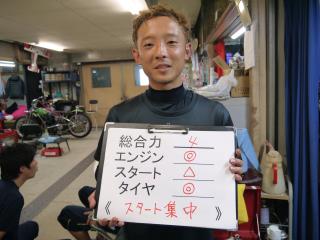 総合力 4
エンジン ◎
スタート △
タイヤ ◎
《 スタート集中 》